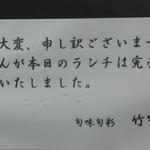 大変、申し訳ございませ
んが本日のランチは完
いたしました。
旬味旬彩 竹